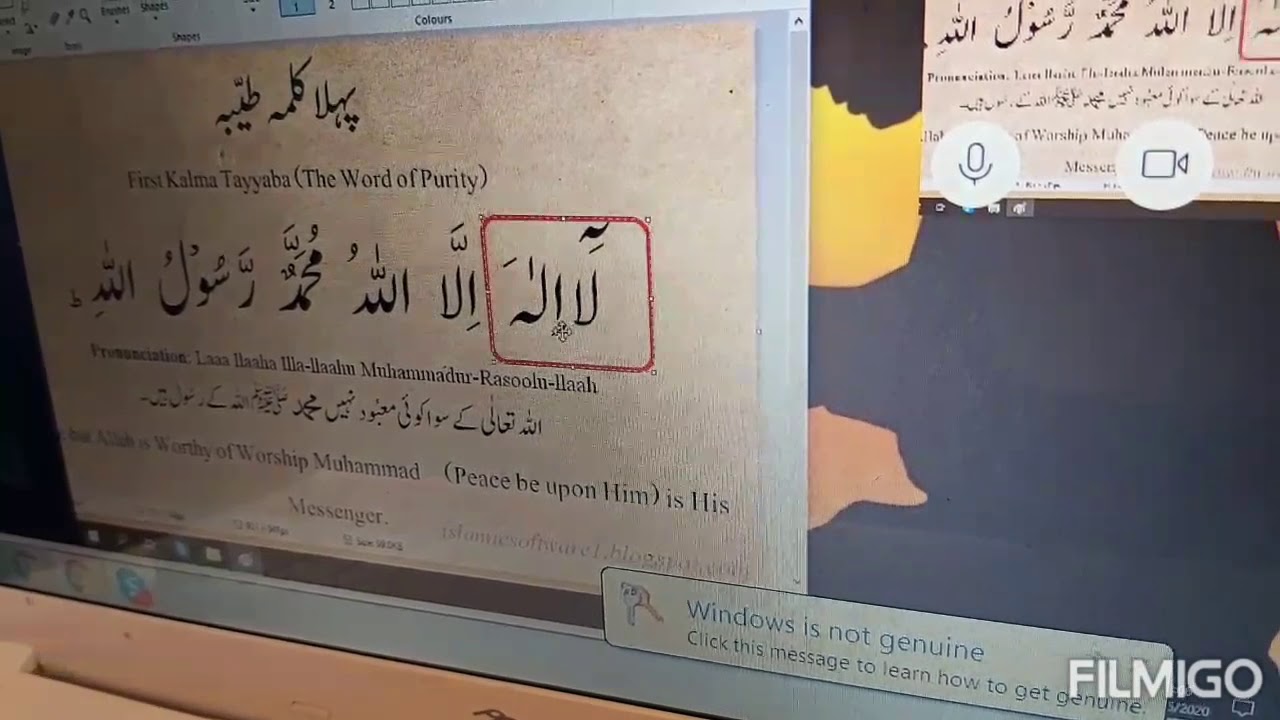 Brushes
Shapes
1
2
Colours
Shapes
پہلا کلمہ طیّبہ
First Kalma Tayyaba (The Word of Purity)
لَآ اِلٰہَ اِلَّا اللّٰہُ مُحَمَّدٌ رَّسُوْلُ اللّٰہِ ط
Pronunciation: Laaa Ilaaha Illa-llaahu Muhammadur-Rasoolu-llaah
اللہ تعالٰی کے سوا کوئی معبُود نہیں محمد ﷺ اللہ کے رسول ہیں۔
but Allah is Worthy of Worship Muhammad (Peace be upon Him) is His
Messenger.
islamicsoftware1.blogspot.com
اِلَّا اللّٰہُ مُحَمَّدٌ رَّسُوْلُ اللّٰہِ
Pronunciation:
اللہ تعالٰی کے سوا کوئی معبُود نہیں محمد ﷺ اللہ کے رسول ہیں۔
of Worship Peace be
Windows is not genuine
Click this message to learn how to get genuine.
FILMIGO
5/2020